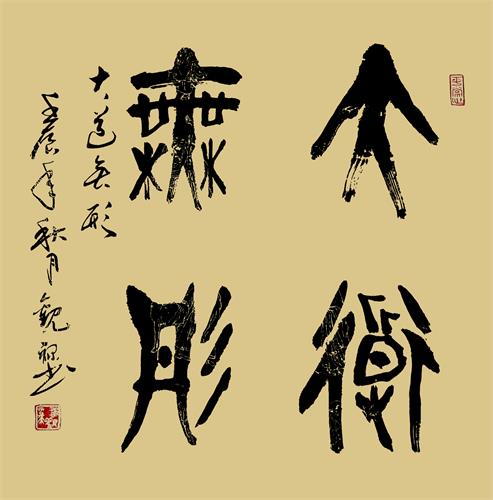 大道
無形
大道無形
壬辰年秋月觀